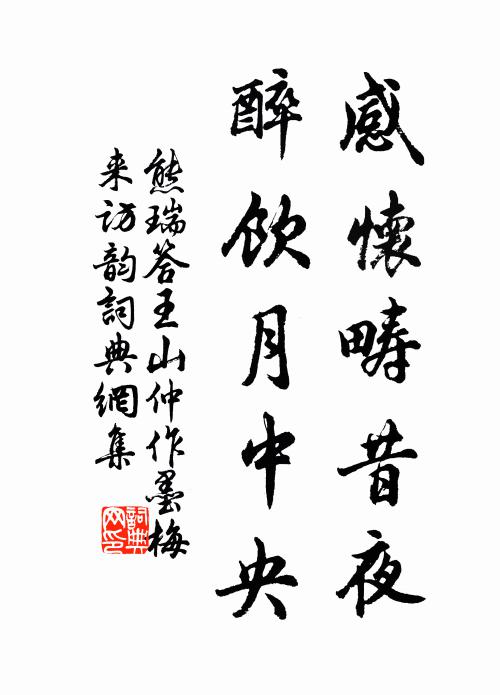 感懷疇昔夜
醉飲月中央
熊瑞答王山仲作墨梅
来訪韵詞典網集
詞典网印